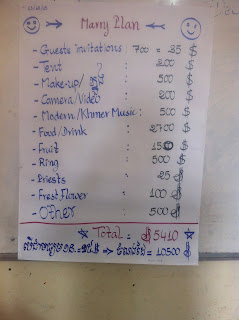 Marry Plan
- Guests invitations 700 = 35 $
- Tent : 200 $
- Make-up/ : 500 $
- Camera/Video : 200 $
- Modern/Khmer Music: 500 $
- Food/Drink : 2700 $
- Fruit : 150 $
- Ring : 500 $
- Priests : 25 $
- Frest Flower : 100 $
- Other : 500 $
Total = $5410
=> = 10500 $